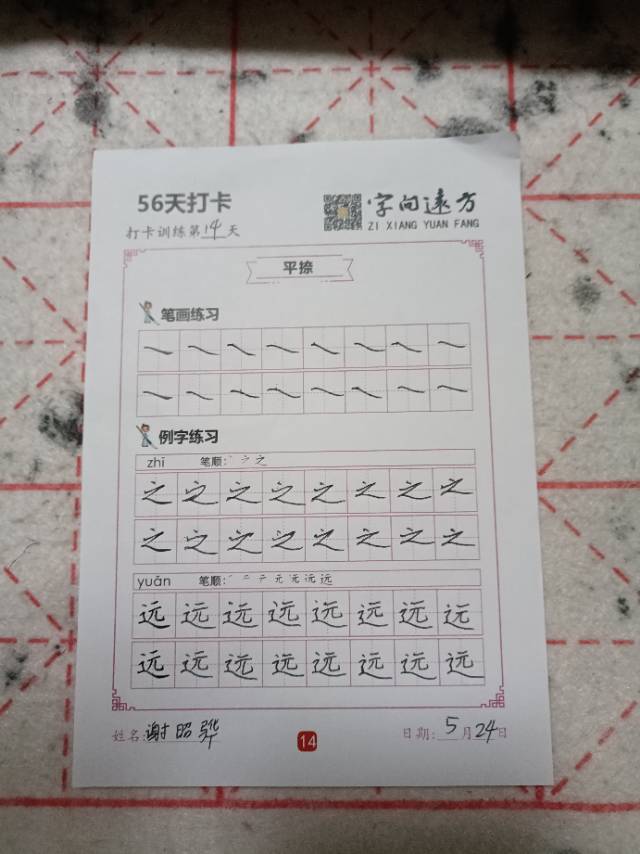 56天打卡
字向远方
ZI XIANG YUAN FANG
打卡训练第14天
平捺
笔画练习
例字练习
zhī 笔顺:丶㇇之
之之之之之之之之
之之之之之之之之
yuǎn 笔顺:一二テ元元远远
远远远远远远远远
远远远远远远远远
姓名:谢昭骅
14
日期:5月24日